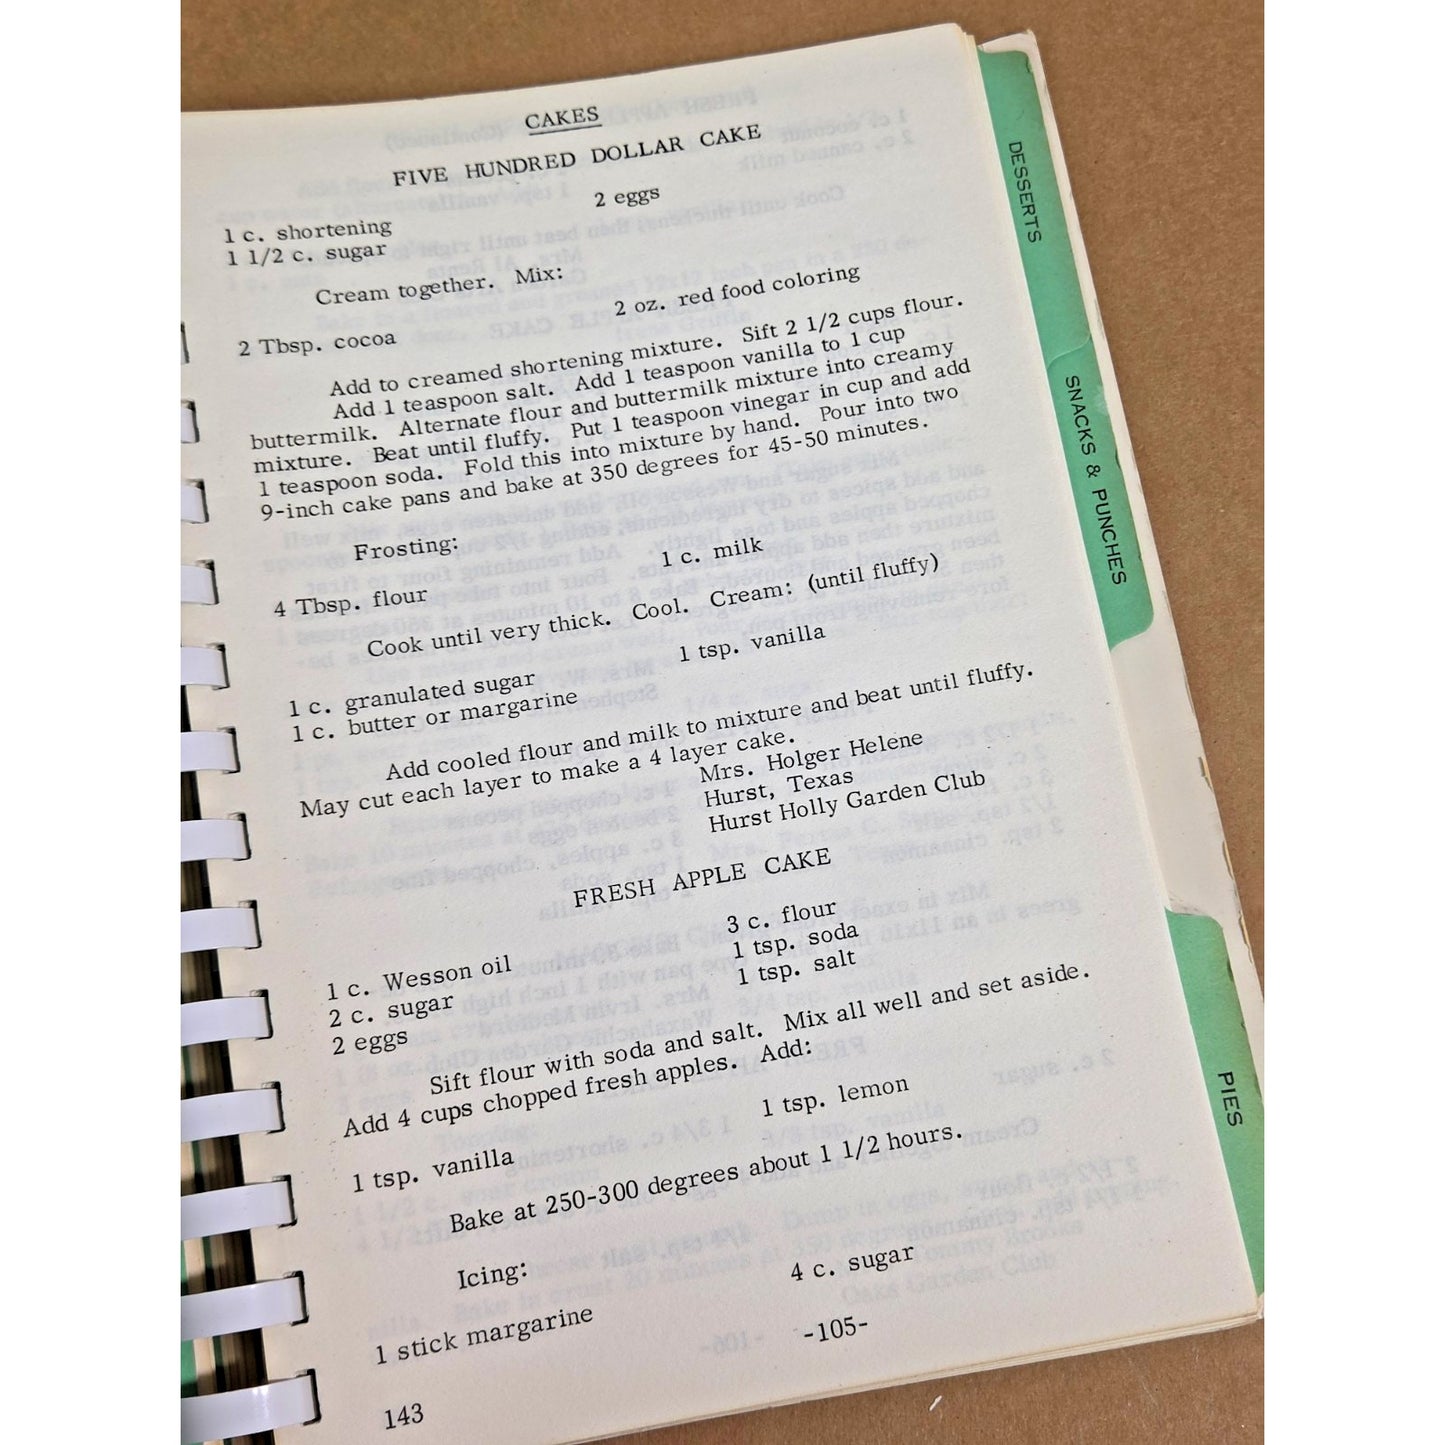 CAKES
FIVE HUNDRED DOLLAR CAKE
1 c. shortening
1 1/2 c. sugar
2 eggs
Cream together. Mix:
2 Tbsp. cocoa
2 oz. red food coloring
Add to creamed shortening mixture. Sift 2 1/2 cups flour.
Add 1 teaspoon salt. Add 1 teaspoon vanilla to 1 cup
buttermilk. Alternate flour and buttermilk mixture into creamy
mixture. Beat until fluffy. Put 1 teaspoon vinegar in cup and add
1 teaspoon soda. Fold this into mixture by hand. Pour into two
9-inch cake pans and bake at 350 degrees for 45-50 minutes.
Frosting:
4 Tbsp. flour
1 c. milk
Cook until very thick. Cool. Cream: (until fluffy)
1 c. granulated sugar
1 c. butter or margarine
1 tsp. vanilla
Add cooled flour and milk to mixture and beat until fluffy.
May cut each layer to make a 4 layer cake.
Mrs. Holger Helene
Hurst, Texas
Hurst Holly Garden Club
FRESH APPLE CAKE
1 c. Wesson oil
2 c. sugar
2 eggs
3 c. flour
1 tsp. soda
1 tsp. salt
Sift flour with soda and salt. Mix all well and set aside.
Add 4 cups chopped fresh apples. Add:
1 tsp. vanilla
1 tsp. lemon
Bake at 250-300 degrees about 1 1/2 hours.
Icing:
1 stick margarine
4 c. sugar
-105-
143
DESSERTS
SNACKS & PUNCHES
PIES